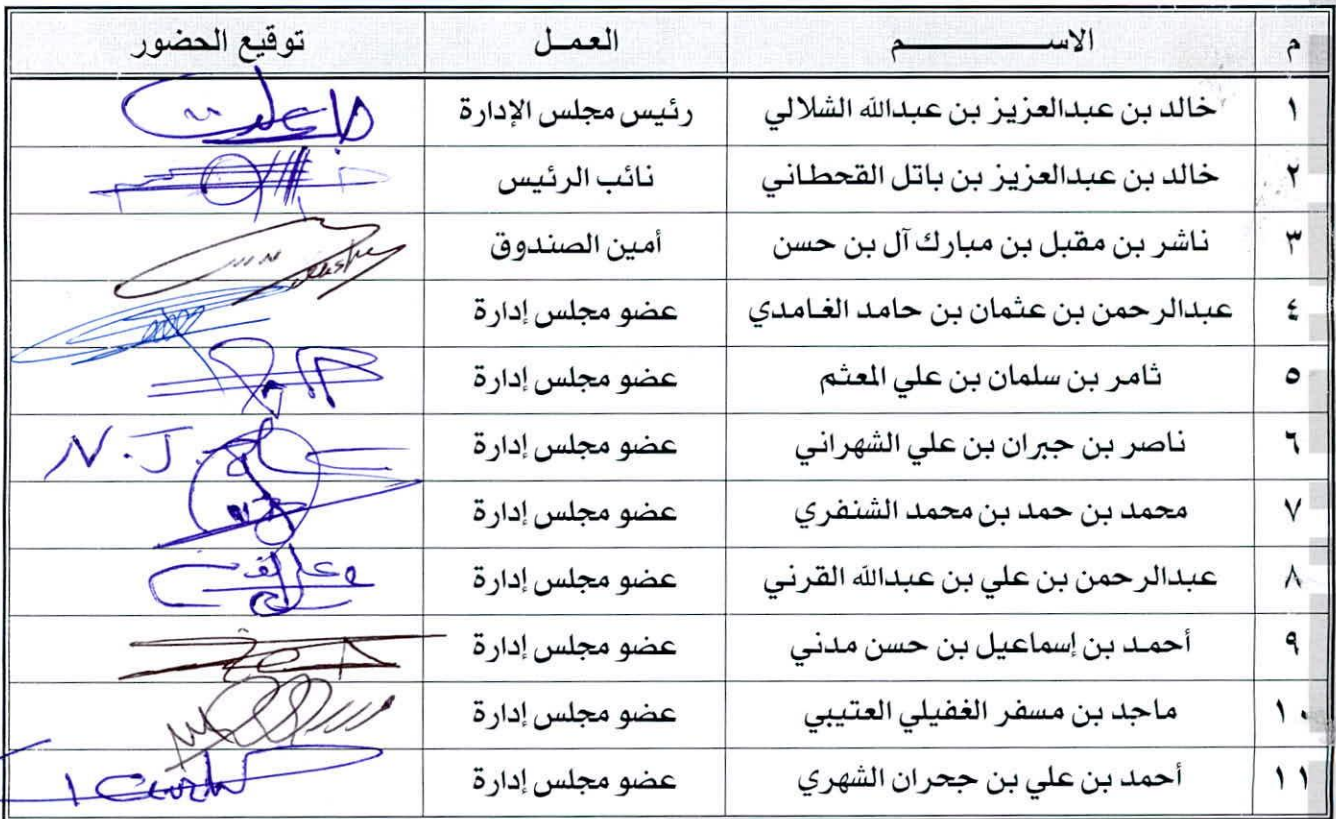 م الاســـــــم العمـل توقيع الحضور
١ خالد بن عبدالعزيز بن عبدالله الشلالي رئيس مجلس الإدارة
٢ خالد بن عبدالعزيز بن باتل القحطاني نائب الرئيس
٣ ناشر بن مقبل بن مبارك آل بن حسن أمين الصندوق
٤ عبدالرحمن بن عثمان بن حامد الغامدي عضو مجلس إدارة
٥ ثامر بن سلمان بن علي المعثم عضو مجلس إدارة
٦ ناصر بن جبران بن علي الشهراني عضو مجلس إدارة N.J.
٧ محمد بن حمد بن محمد الشنفري عضو مجلس إدارة
٨ عبدالرحمن بن علي بن عبدالله القرني عضو مجلس إدارة
٩ أحمد بن إسماعيل بن حسن مدني عضو مجلس إدارة
١٠ ماجد بن مسفر الغفيلي العتيبي عضو مجلس إدارة
١١ أحمد بن علي بن جحران الشهري عضو مجلس إدارة